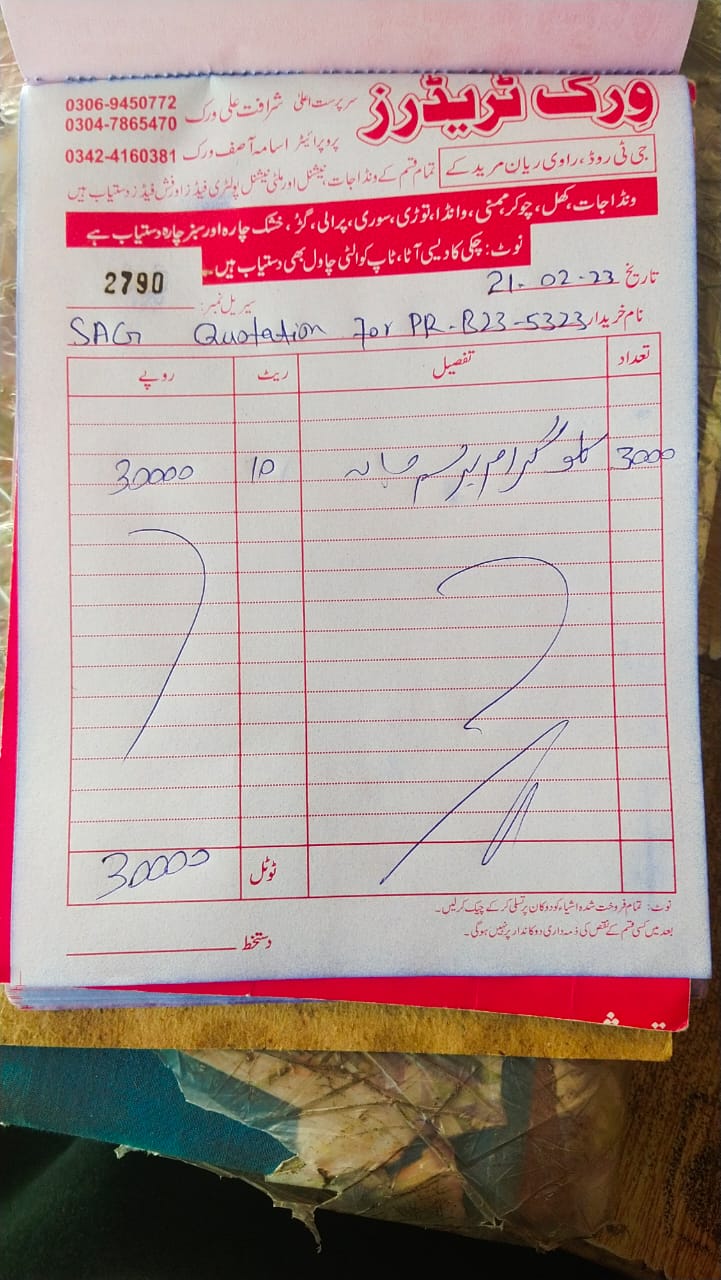 ورک ٹریڈرز
سرپرست اعلیٰ شرافت علی ورک 0306-9450772
0304-7865470
پروپرائیٹر اسامہ آصف ورک 0342-4160381
جی ٹی روڈ، راوی ریان مریدکے
تمام قسم کے ونڈا جات، نیشنل اور ملٹی نیشنل پولٹری فیڈز اوز فش فیڈز دستیاب ہیں
ونڈا جات، کھل، چوکر، وانڈا، توڑی، سوری، پرالی، گڑ، خشک چارہ اور سبز چارہ دستیاب ہے
نوٹ: چکی کا دیسی آٹا، ٹاپ کوالٹی چاول بھی دستیاب ہیں۔
تاریخ 21-02-23
سیریل نمبر: 2790
نام خریدار SAG Quotation For PR-B23-5323
تعداد تفصیل ریٹ روپے
3000 کلو گرام 10 30000
ٹوٹل 30000
نوٹ: تمام فروخت شدہ اشیاء کو دوکان پر تسلی کر کے چیک کر لیں۔
بعد میں کسی قسم کے نقص کی ذمہ داری دوکاندار پر نہیں ہوگی۔
دستخط